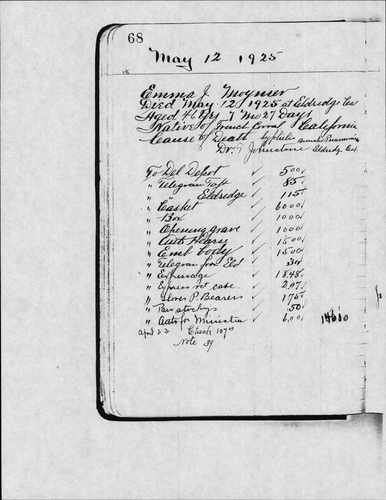 68
May 12 1925
Emma J. Moynier
Died May 12 1925 at Eldredge Cal
Aged 46 Yrs 7 Mo 27 Days
Native of California
Cause of Death
Dr. Johnstone Eldredge Cal.
To Del Depot 5 00
" Telegram 85
" " Eldredge 1 15
" Casket 60 00
" Box 10 00
" Opening Grave 10 00
" Auto Hearse 15 00
" Emb body 15 00
" Telegram from Eld
" Expressage 8.48
" Express ret case 2.07
" Gloves P. Bearers 1 75
" 50
" Auto for Minister 6.00
April 23 Check
Note 39